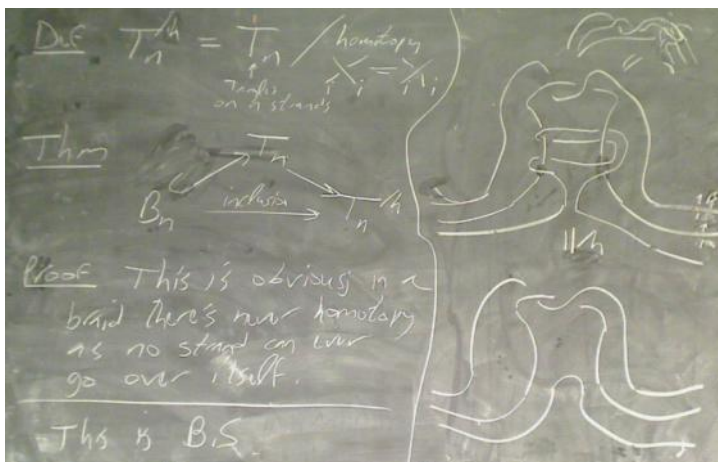 Def T_n^{/h} = T_n / homotopy
Tangles
on n strands
Thm
T_n
B_n inclusion T_n^{/h}
Proof This is obvious, in a
braid there's never homotopy
as no strand can ever
go over itself.
This is B.S.
|| /h